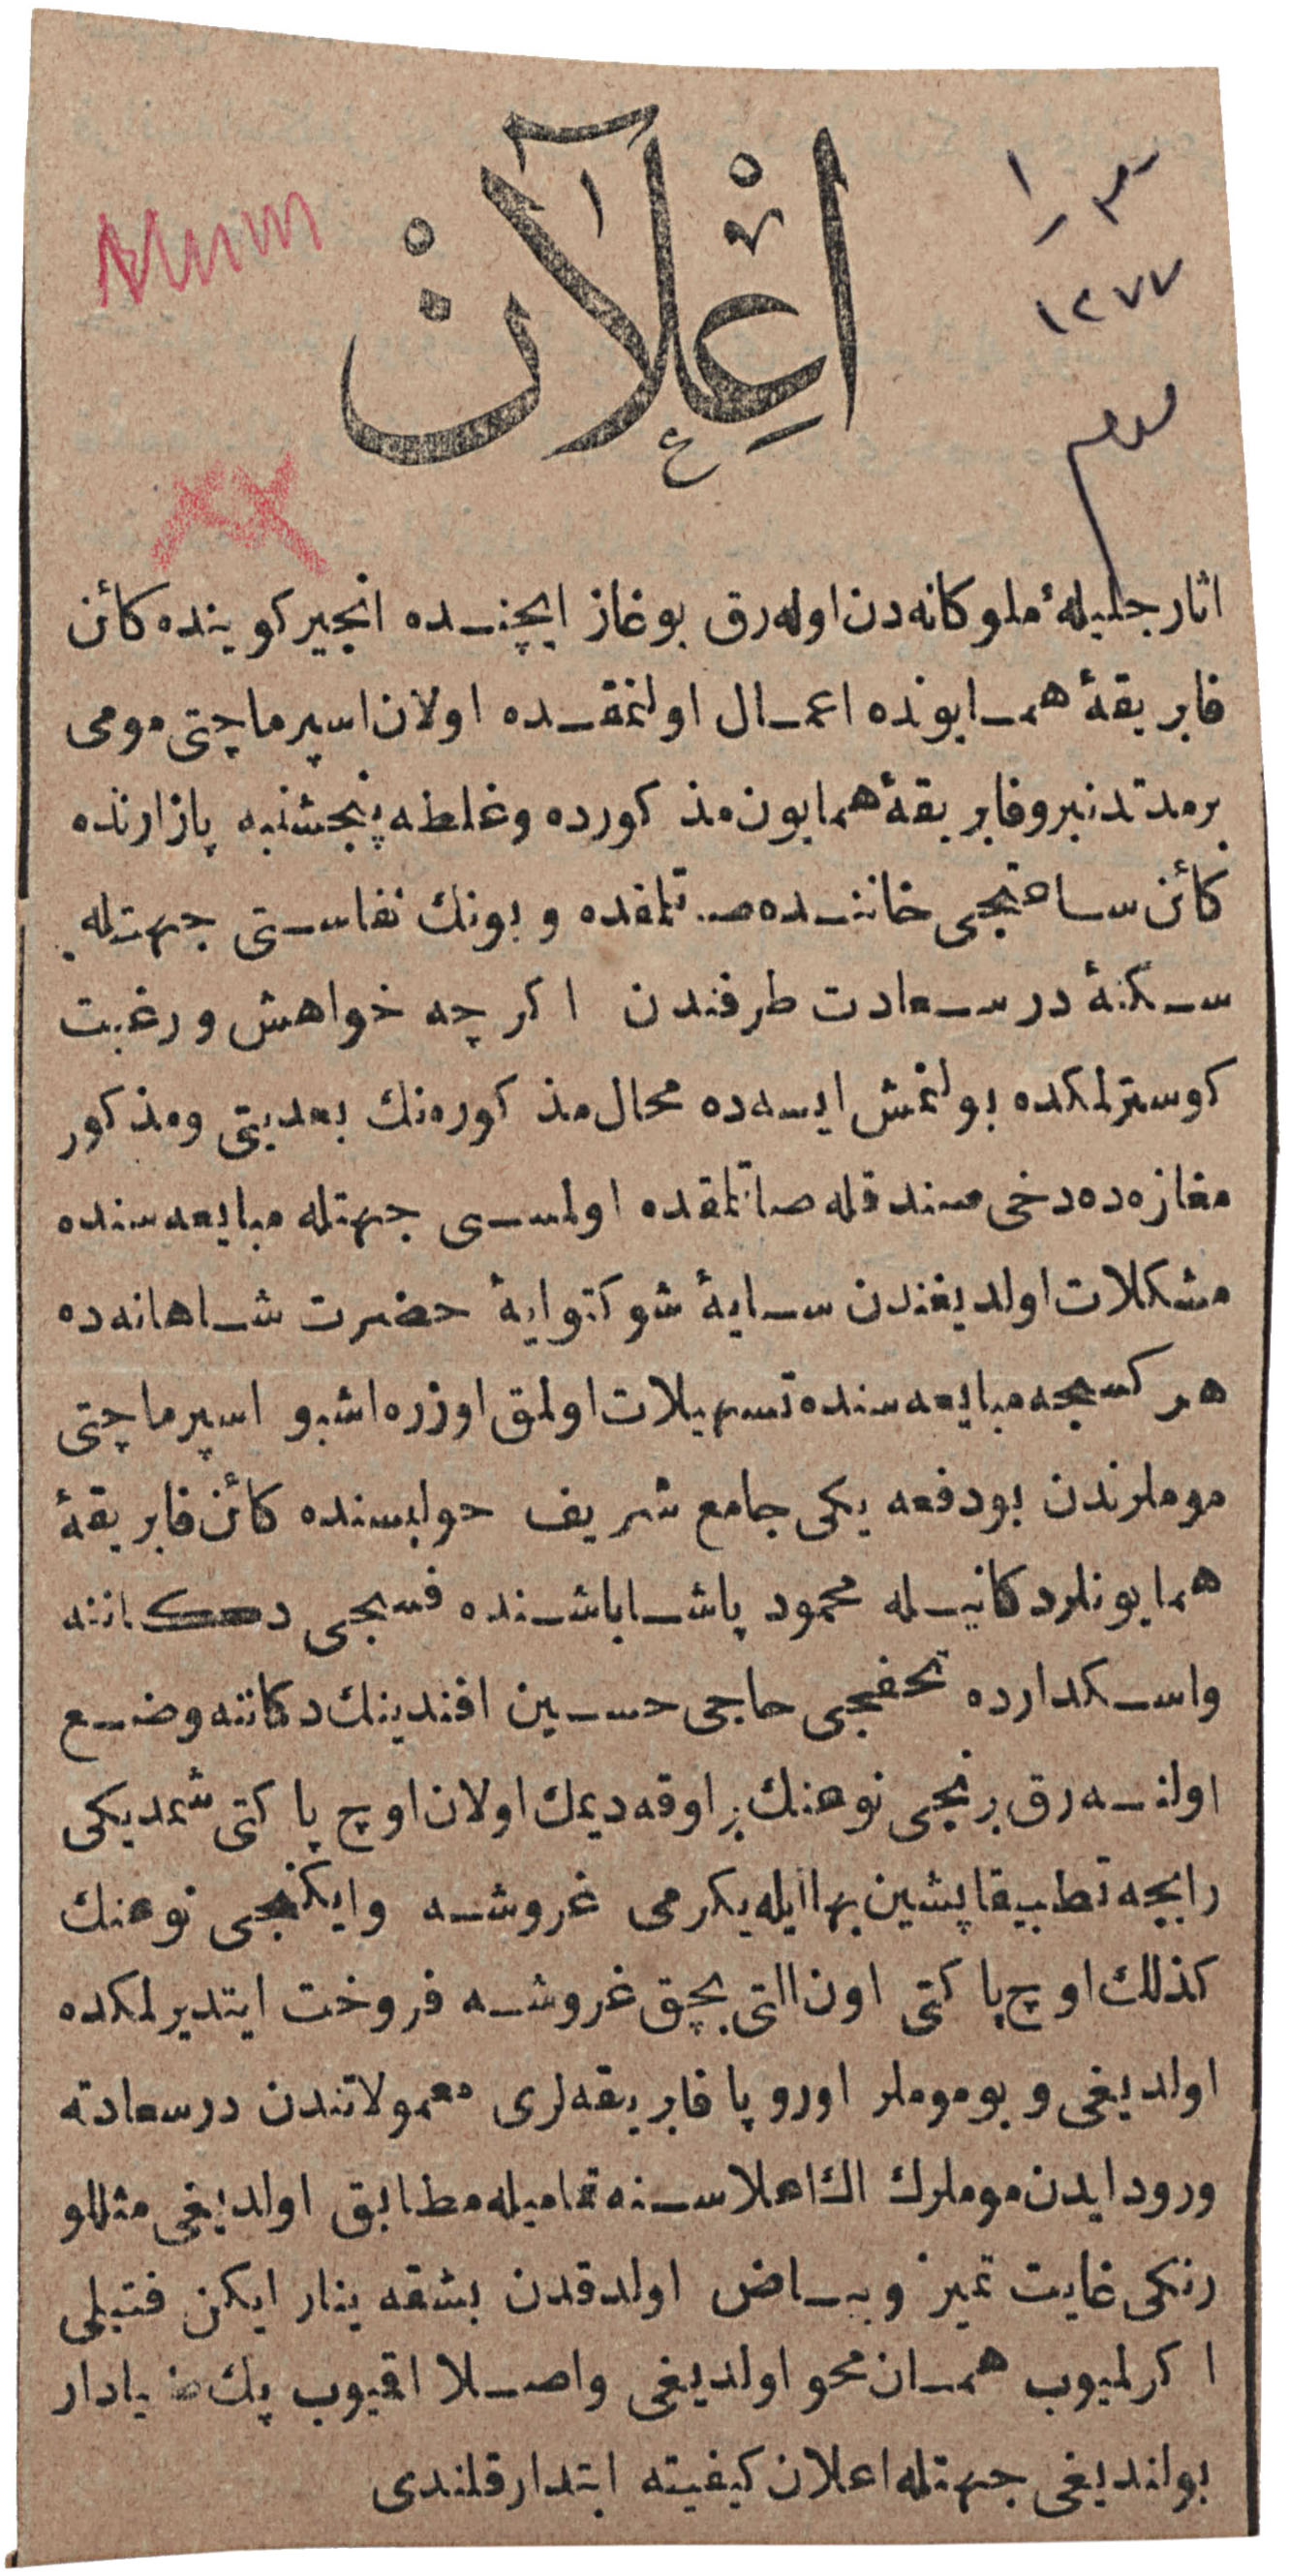 اعلان
١٢٧٧
Mum
اثار جليلهٔ ملوكانه‌دن اوله‌رق بوغاز ايچنده انجير كوينده كائن
فابريقهٔ همايونده اعمال اولنمقده اولان اسپرماچتى مومى
برمدتدنبرو فابريقهٔ همايون مذكورده وغلطه پنجشنبه پازارنده
كائن ساعتجى خاننده صاتلمقده و بونك نفاستى جهتله
سكنهٔ درسعادت طرفندن اكرچه خواهش ورغبت
كوسترلمكده بولنمش ايسه‌ده محال مذكوره‌نك بعديتى ومذكور
مغازه‌ده دخى صندقله صاتلمقده اولمسى جهتله مبايعه‌سنده
مشكلات اولديغندن سايهٔ شوكتوايهٔ حضرت شاهانه‌ده
هركسجه مبايعه‌سنده تسهيلات اولمق اوزره اشبو اسپرماچتى
موملرندن بودفعه يكى جامع شريف حوليسنده كائن فابريقهٔ
همايونلر دكانيله محمود پاشا باشنده فسجى دكاننه
واسكدارده تحفجى حاجى حسين افندينك دكاننه وضع
اولنه‌رق برنجى نوعنك بر اوقه ديمك اولان اوچ پاكتى شمديكى
رايجه تطبيقا پشين بها ايله يكرمى غروشه وايكنجى نوعنك
كذلك اوچ پاكتى اون التى بچق غروشه فروخت ايتديرلمكده
اولديغى و بو موملر اوروپا فابريقه‌لرى معمولاتندن درسعادته
ورود ايدن موملرك اك اعلاسنه تماميله مطابق اولديغى مثللو
رنكى غايت تميز و بياض اولدقدن بشقه ينار ايكن فتيلى
اكرلميوب همان محو اولديغى واصلا اقيوب پك ضيادار
بولنديغى جهتله اعلان كيفيته ابتدار قلندى